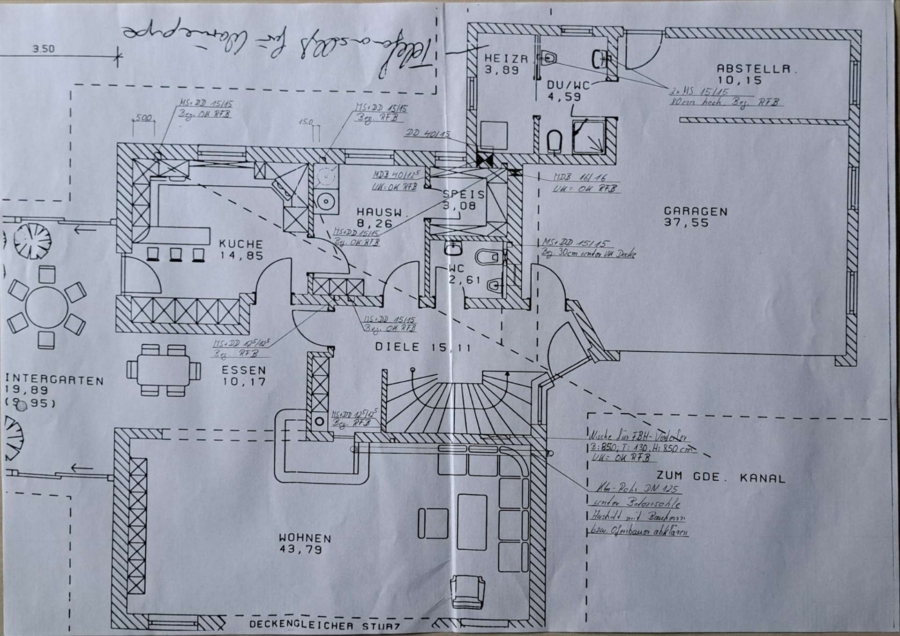 3.50
Telef
für Wärmepumpe
HEIZR
3,89
DU/WC
4,59
ABSTELLR.
10,15
2x MS 15/15
Bez. RFB
MS+DD 15/15
Bez. OK RFB
MS+DD 15/15
Bez. RFB
500
150
DD 40/15
MDB 40/12⁵
UK= OK RFB
MDB 16/16
UK= OK RFB
SPEIS
3,08
GARAGEN
37,55
HAUSW.
8,26
KÜCHE
14,85
MS+DD 15/15
Bez. OK RFB
MS+DD 15/15
Bez. 30cm unter UK Decke
WC
2,61
MS+DD 15/15
Bez. OK RFB
MS+DD 12⁵/12⁵
Bez. RFB
DIELE 15,11
ESSEN
10,17
INTERGARTEN
19,89
(9,95)
MS+DD 12⁵/12⁵
Bez. RFB
Nische für FBH-Verteiler
B=850, T=130, H=850 cm
UK= OK RFB
ZUM GDE. KANAL
Rohr DN 125
unter Betonsohle
mit Bauherrn
bzw. Ofenbauer abklären
WOHNEN
43,79
DECKENGLEICHER STURZ